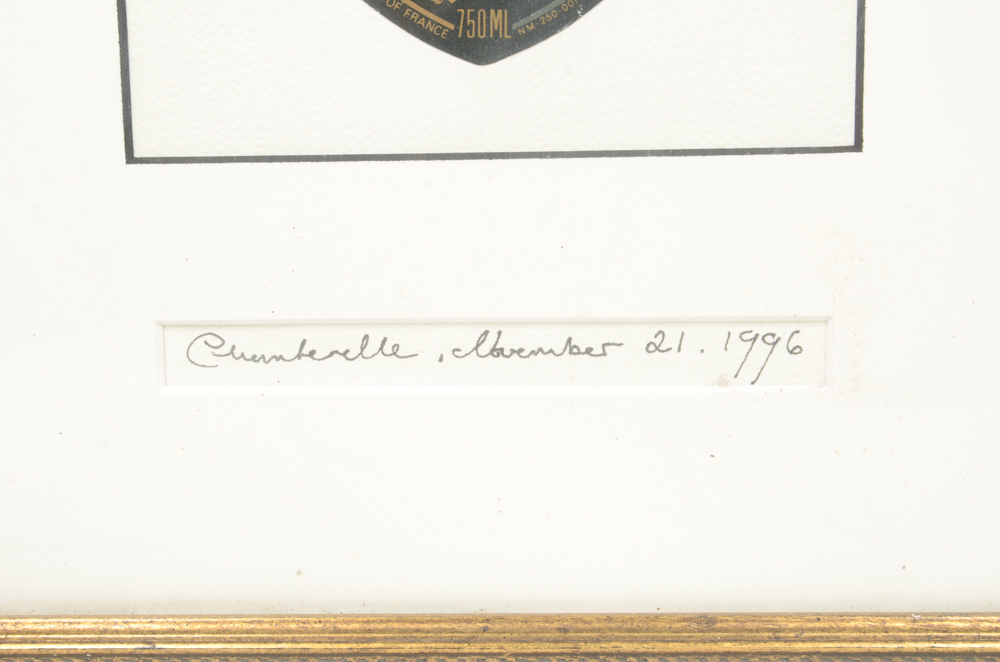 OF FRANCE 750ML NM-250-001
Chanterelle, November 21. 1996